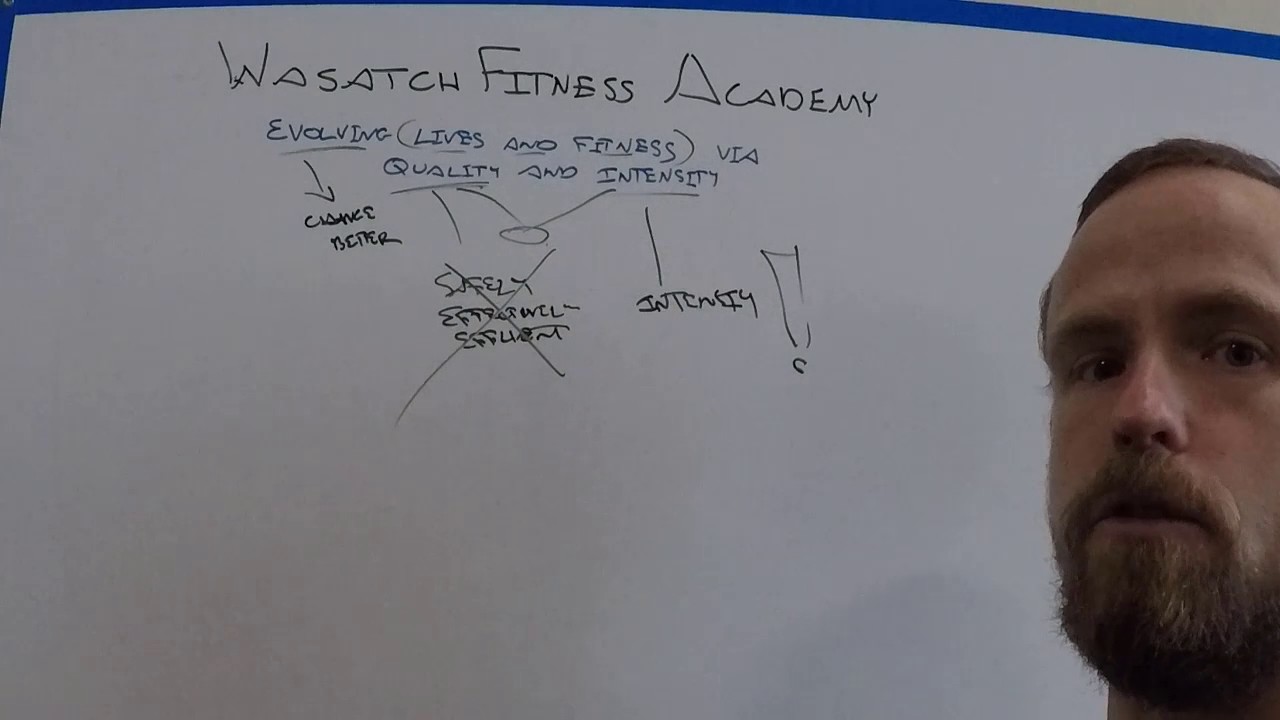 WASATCH FITNESS ACADEMY
EVOLVING (LIVES AND FITNESS) VIA
QUALITY AND INTENSITY
CHANGE
BETTER
SAFELY
INTENSITY !